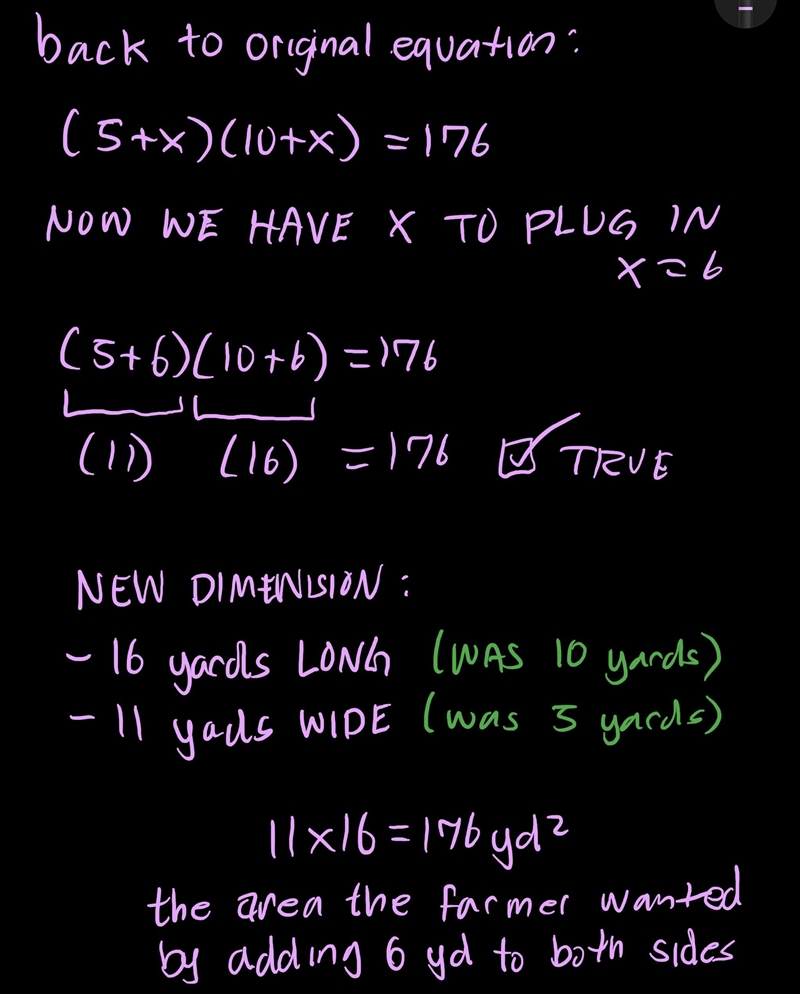 back to original equation:
(5+x)(10+x) = 176
NOW WE HAVE X TO PLUG IN
x = 6
(5+6)(10+6) = 176
(11) (16) = 176 ☑ TRUE
NEW DIMENSION:
- 16 yards LONG (WAS 10 yards)
- 11 yads WIDE (was 5 yards)
11x16 = 176 yd²
the area the farmer wanted
by adding 6 yd to both sides